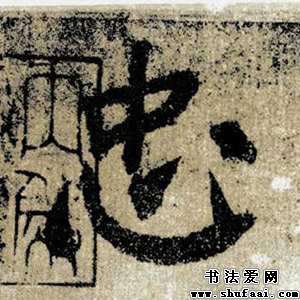 忠
书法爱网
www.shufaai.com